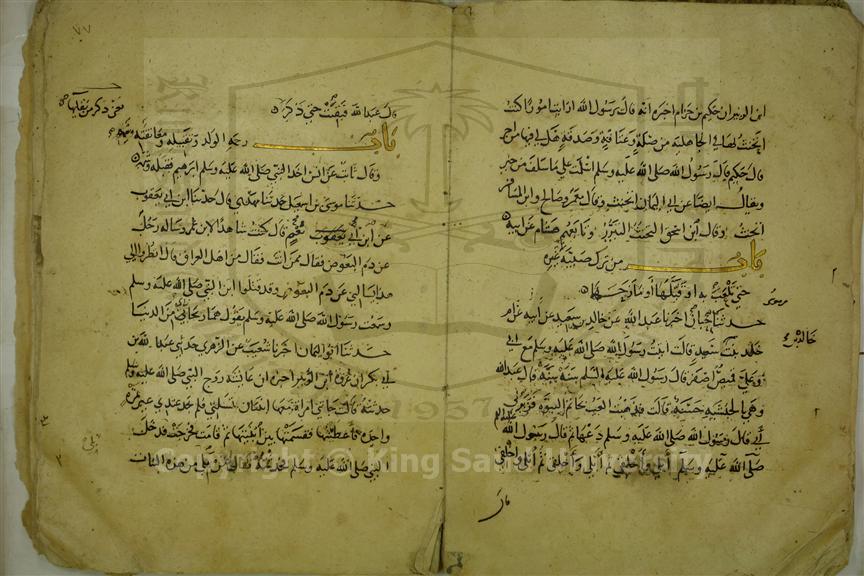 ابن الزبير ان حكيم بن حزام اخبره انه قال يرسول الله ارايت امورا كنت
اتحنث بها في الجاهلية من صلة وعتاقة وصدقة هل لي فيها من اجر
قال حكيم قال رسول الله صلى الله عليه وسلم اسلمت على ما سلف من خير
ويقال ايضا عن ابي اليمان اتحنث وقال معمر وصالح وابن المسافر
اتحنث وقال ابن اسحق التحنث التبرر وتابعهم هشام عن ابيه
باب من ترك صبية غيره
حتى تلعب به او قبلها او مازحها
حدثنا حبان اخبرنا عبد الله عن خالد بن سعيد عن ابيه عن ام
خالد بنت سعيد قالت اتيت رسول الله صلى الله عليه وسلم مع ابي
وعلي قميص اصفر قال رسول الله عليه السلم سنه سنه قال عبد الله
وهي بالحبشية حسنة قالت فذهبت العب بخاتم النبوة فزبرني
ابي قال رسول الله صلى الله عليه وسلم دعها ثم قال رسول الله
صلى الله عليه وسلم ابلي واخلقي ثم ابلي واخلقي ثم ابلي واخلقي
قال
خالد بن
٧٧
قال عبد الله فبقيت حتى ذكر
يعني ذكر من بقائها
باب رحمة الولد وتقبيله ومعانقته
وقال ثابت عن انس اخذ النبي صلى الله عليه وسلم ابرهيم فقبله وشمه
حدثنا موسى بن اسمعيل حدثنا مهدي قال حدثنا ابن ابي يعقوب
عن ابن ابي نعم قال كنت شاهدا لابن عمر وساله رجل
عن دم البعوض فقال ممن انت فقال من اهل العراق قال انظروا الى
هذا يسالني عن دم البعوض وقد قتلوا ابن النبي صلى الله عليه وسلم
وسمعت رسول الله صلى الله عليه وسلم يقول هما ريحانتاي من الدنيا
حدثنا ابو اليمان اخبرنا شعيب عن الزهري حدثني عبد الله بن
ابي بكر ان عروة ابن الزبير اخبره ان عائشة زوج النبي صلى الله عليه وسلم
حدثته قالت جاتني امراة معها ابنتان تسالني فلم تجد عندي غير تمرة
واحدة فاعطيتها فقسمتها بين ابنتيها ثم قامت فخرجت فدخل
النبي صلى الله عليه وسلم فحدثته فقال من يلي من هذه البنات
Copyright © King Saud University
1957